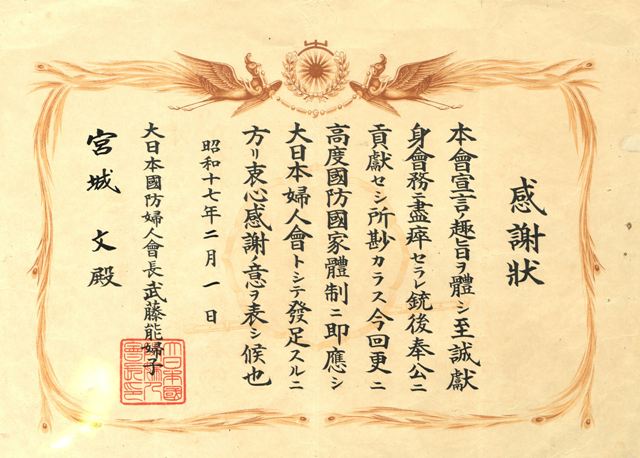 感謝狀
本會宣言ノ趣旨ヲ體シ至誠獻
身會務ニ盡瘁セラレ銃後奉公ニ
貢獻セシ所尠カラス今回更ニ
高度國防國家體制ニ即應シ
大日本婦人會トシテ發足スルニ
方リ衷心感謝ノ意ヲ表シ候也
昭和十七年二月一日
大日本國防婦人會長武藤能婦子
宮城文殿